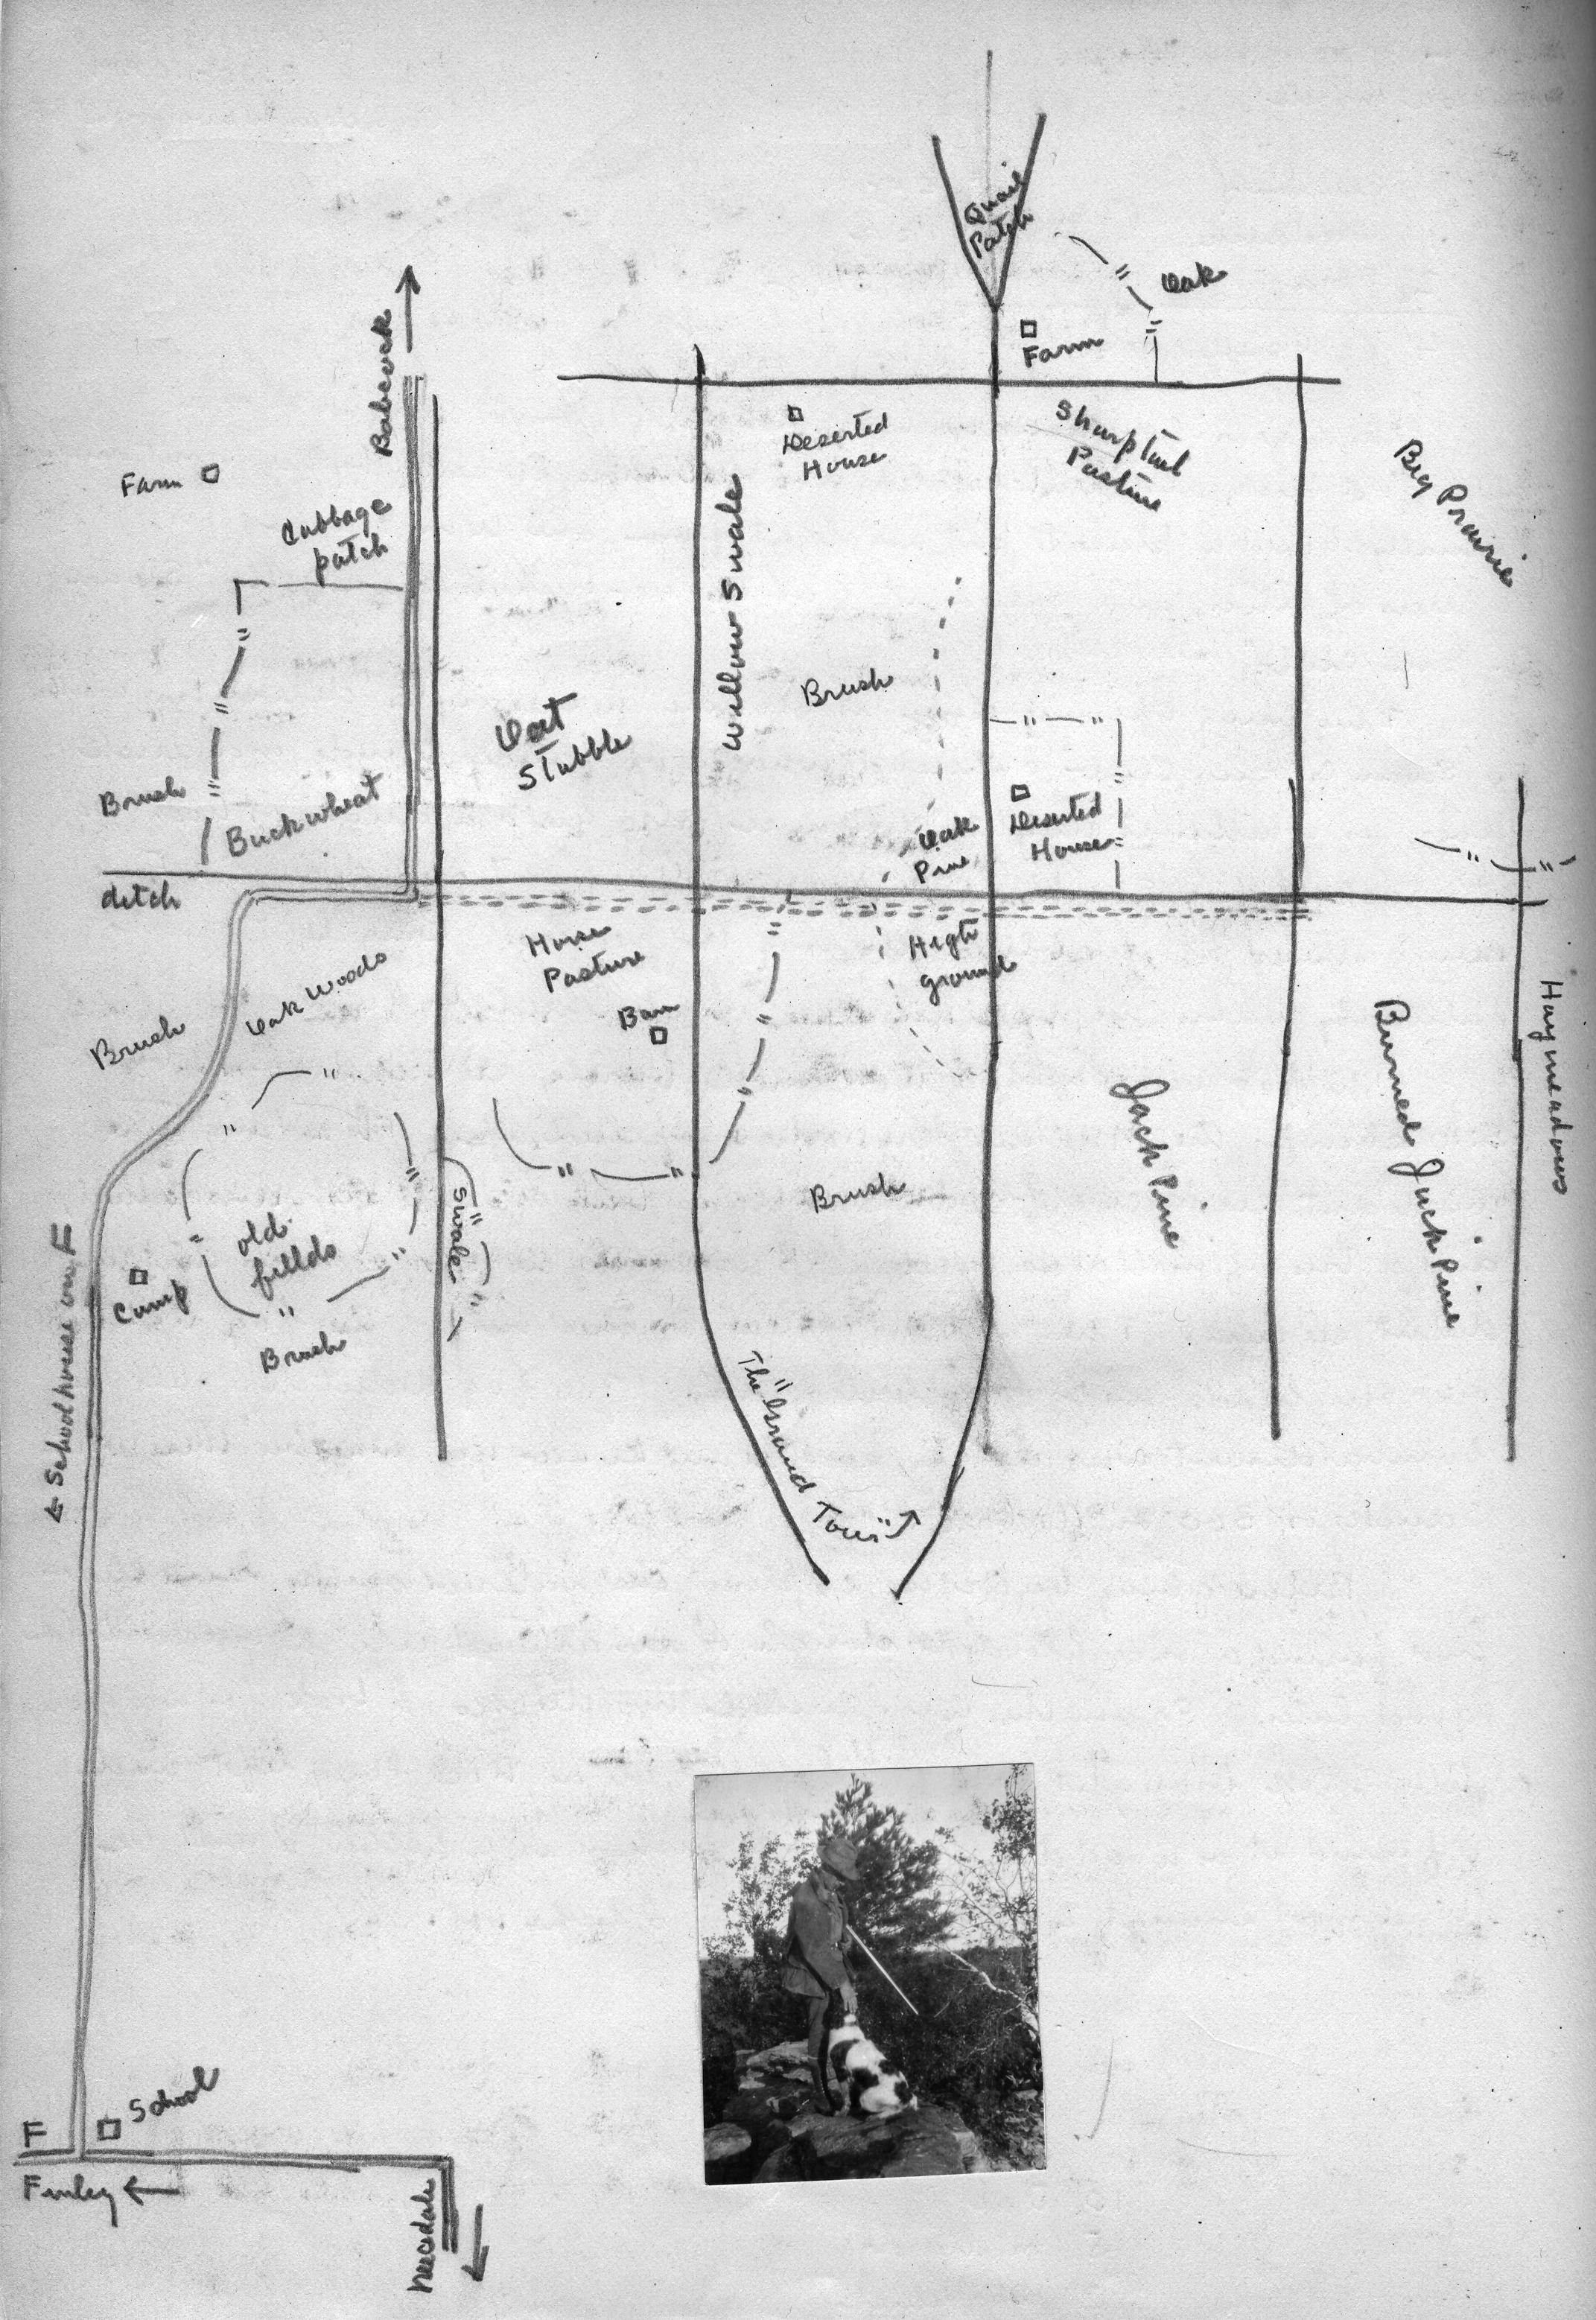 Quail
Patch
Oak
Farm
Babcock
Deserted
House
Sharptail
Pasture
Big Prairie
Farm
Cabbage
patch
Willow Swale
Brush
Oat
Stubble
Brush
Buckwheat
Oak
Pine
Deserted
House
ditch
Horse
Pasture
High
ground
Oak Woods
Brush
Barn
Haymeadows
Burned Jack Pine
Jack Pine
Brush
Swale
old
fields
Camp
Brush
Schoolhouse on F
The "Grand Tour"
School
F
Finley
Necedah